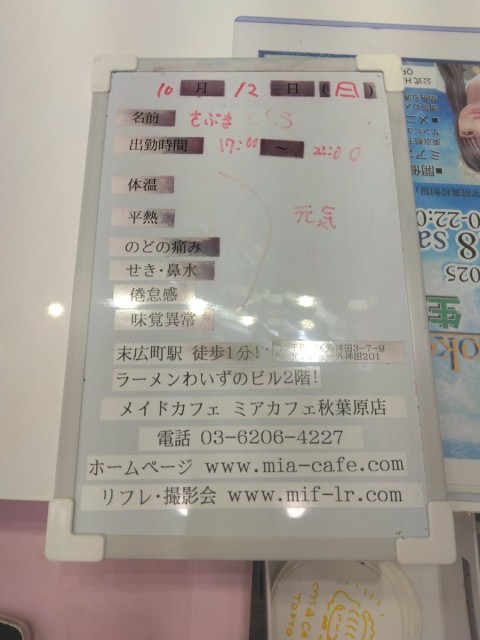 10 月 12 日 (日)
名前
出勤時間 17:00 ～ 22:00
体温
平熱
元気
のどの痛み
せき・鼻水
倦怠感
味覚異常
末広町駅 徒歩1分!
外神田3-7-9
外神田201
ラーメンわいずのビル2階!
メイドカフェ ミアカフェ秋葉原店
電話 03-6206-4227
ホームページ www.mia-cafe.com
リフレ・撮影会 www.mif-lr.com
2025